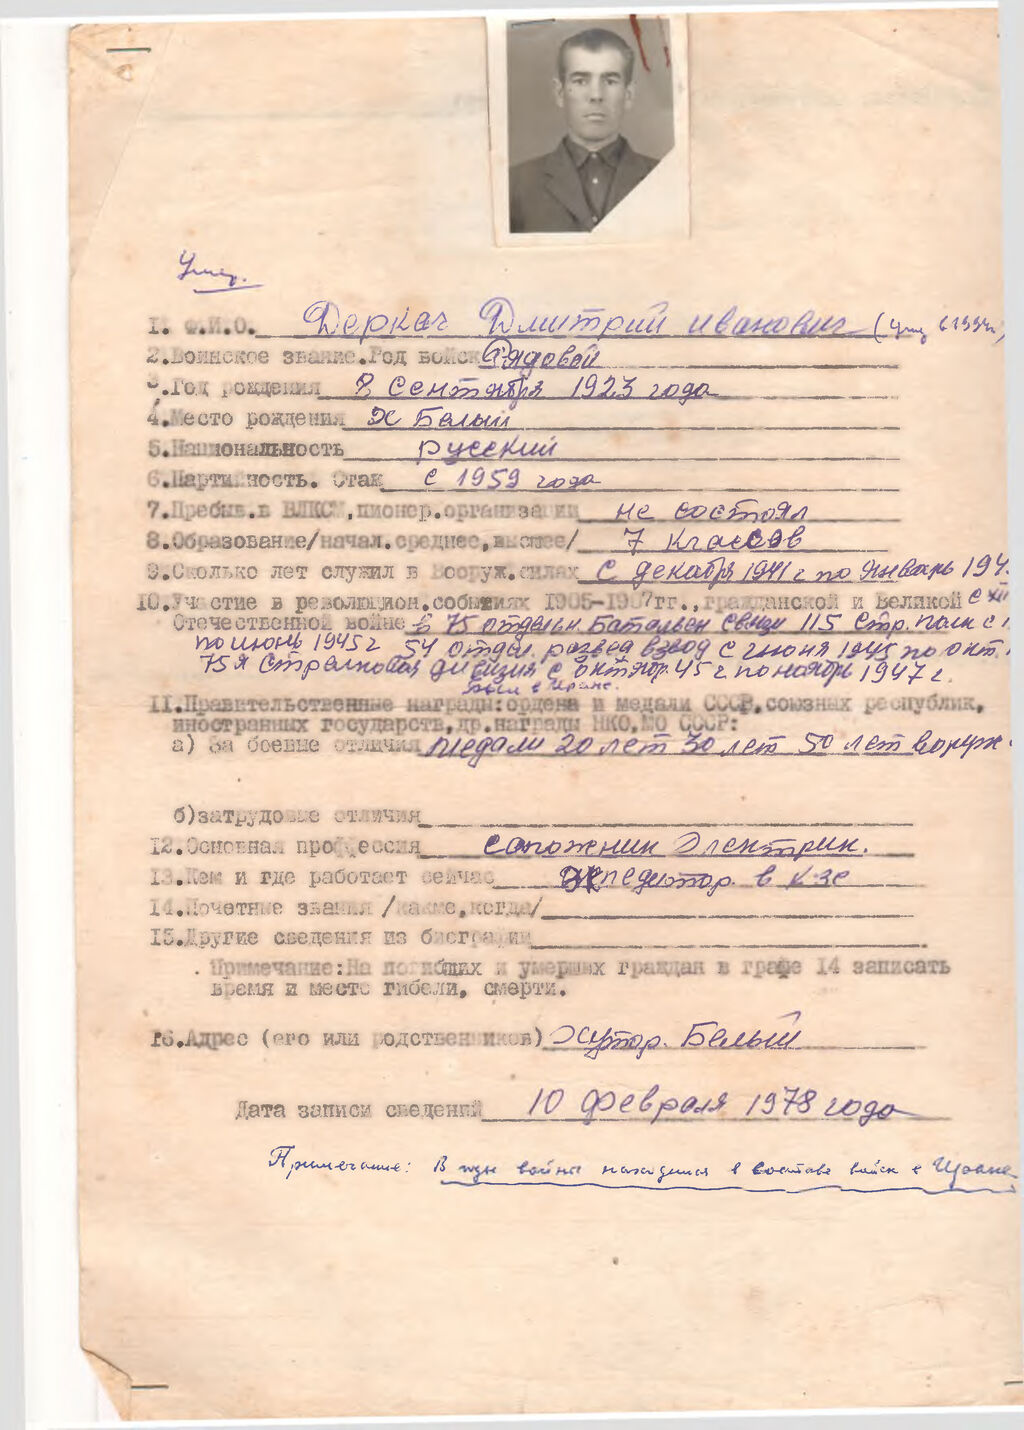 Умер.
1. Ф.И.О. Деркач Дмитрий Иванович (умер в 1994г)
2. Воинское звание. Род войск Рядовой
3. Год рождения 8 Сентября 1923 года
4. Место рождения х Белый
5. Национальность русский
6. Партийность. Стаж с 1959 года
7. Пребыв. в ВЛКСМ, пионер. организации не состоял
8. Образование/начал. среднее, высшее/ 7 классов
9. Сколько лет служил в Вооруж. силах с декабря 1941 г по Январь 194
10. Участие в революцион. событиях 1905-1907гг., гражданской и Великой с XII
Отечественной войне в 75 отдельн. Батальен связи 115 Стр. полк с 1
по июнь 1945 г 54 отдел. развед взвод с июня 1945 по окт.
75я Стрелковая дивизия с октябр. 45 г по ноябрь 1947 г.
Был в Иране.
11. Правительственные награды: ордена и медали СССР, союзных республик,
иностранных государств, др. награды НКО, МО СССР:
а) За боевые отличия медали 20 лет 30 лет 50 лет воруж
б)затрудовые отличия
12. Основная профессия сапожник Электрик.
13. Кем и где работает сейчас экспедитор. в
14. Почетные звания /какие, когда/
15. Другие сведения из биографии
Примечание: На погибших и умерших граждан в графе 14 записать
время и место гибели, смерти.
16. Адрес (его или родственников) Хутор. Белый
Дата записи сведений 10 февраля 1978 года
Примечание: В годы войны находился в составе войск в Иране